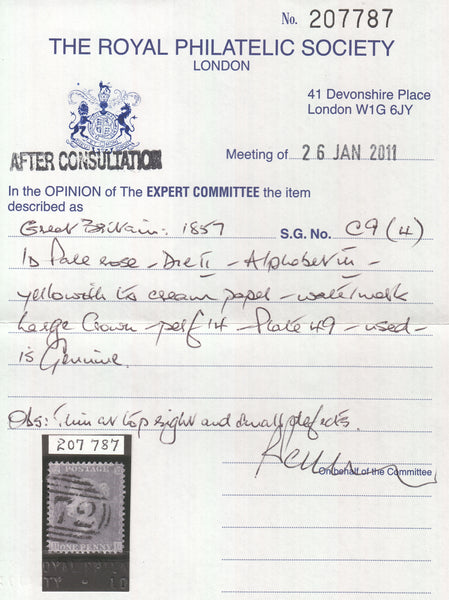 No. 207787
THE ROYAL PHILATELIC SOCIETY
LONDON
41 Devonshire Place
London W1G 6JY
AFTER CONSULTATION
Meeting of 26 JAN 2011
In the OPINION of The EXPERT COMMITTEE the item
described as
Great Britain: 1857 S.G. No. C9 (4)
1D Pale rose - Die II - Alphabet III -
yellowish to cream paper - watermark
Large Crown - perf 14 - Plate 49 - used -
is Genuine.
Obs: Thin at top right and small defects.
On behalf of the Committee
207 787
POSTAGE
72
ONE PENNY